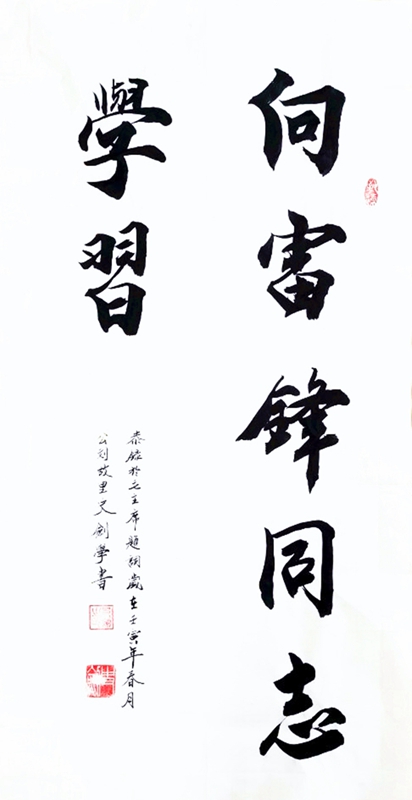 向雷鋒同志
學習
恭錄於毛主席題詞歲在壬寅年春月
公刘故里尺劍學書